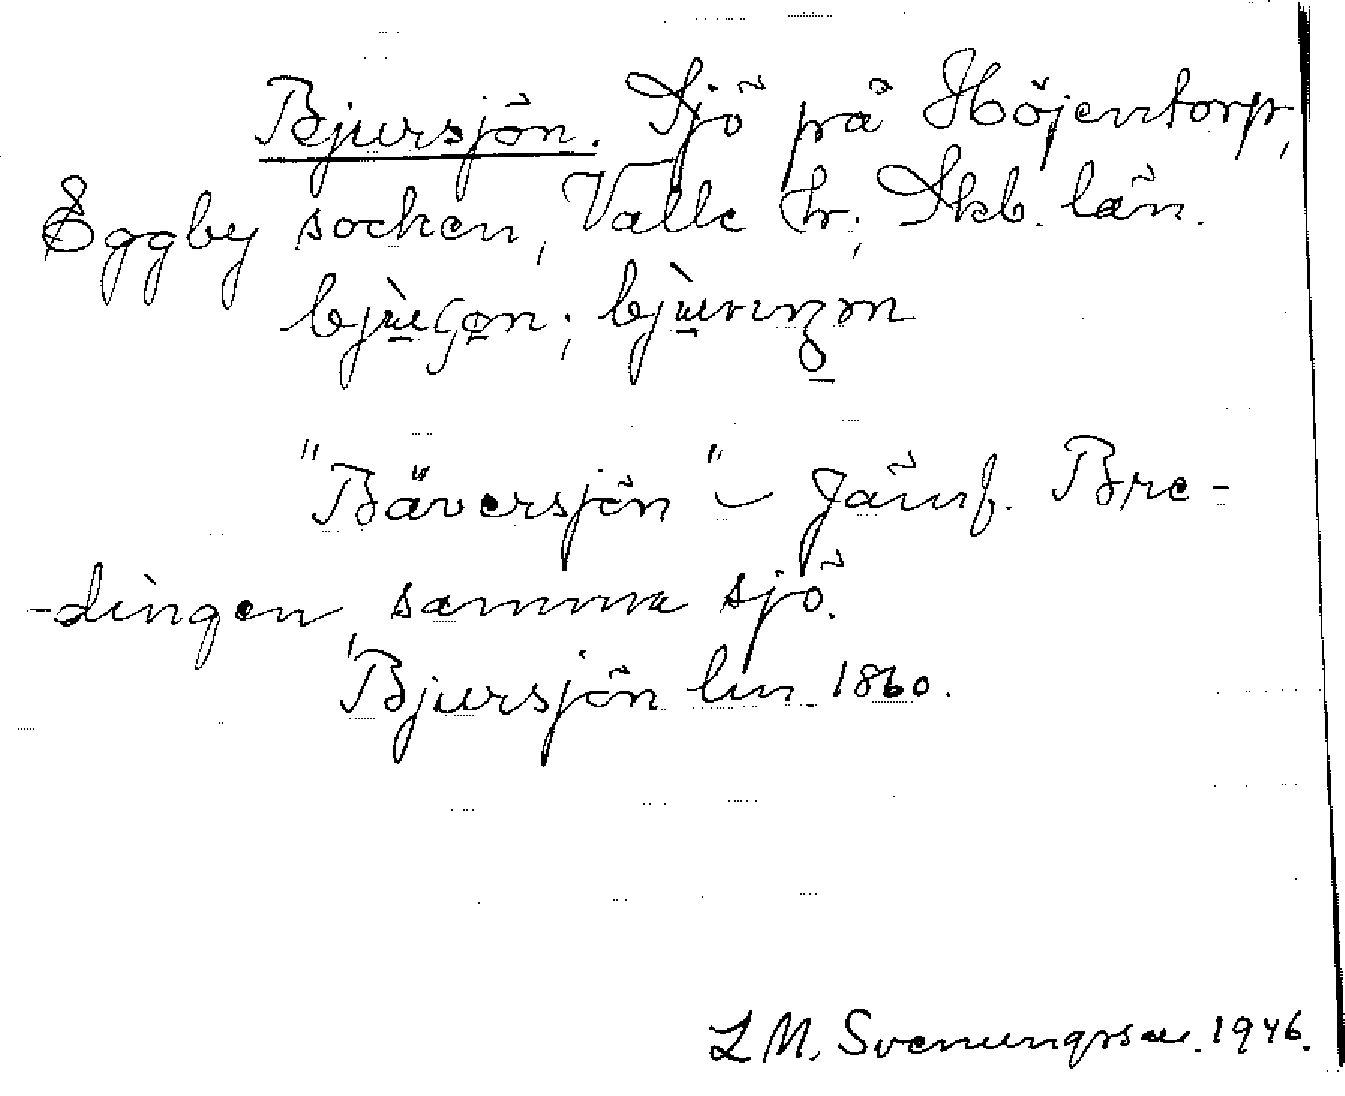 Bjursjön. Sjö på Höjentorp,
Eggby socken, Valle hr; Skb. län.
"Bäversjön" – Jämf. Bre-
-dingen samma sjö.
Bjursjön lm 1860.
L M. Svenungsson. 1946.